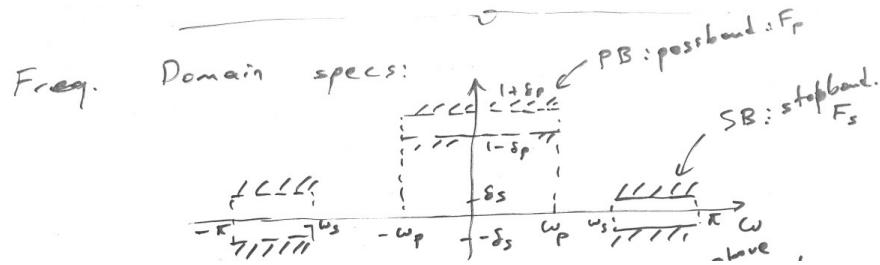 Freq. Domain specs:
PB: passband: Fp
SB: stopband.
Fs
1+δp
1-δp
δs
-δs
-π
ωs
-ωp
ωp
ωs
π
ω
above